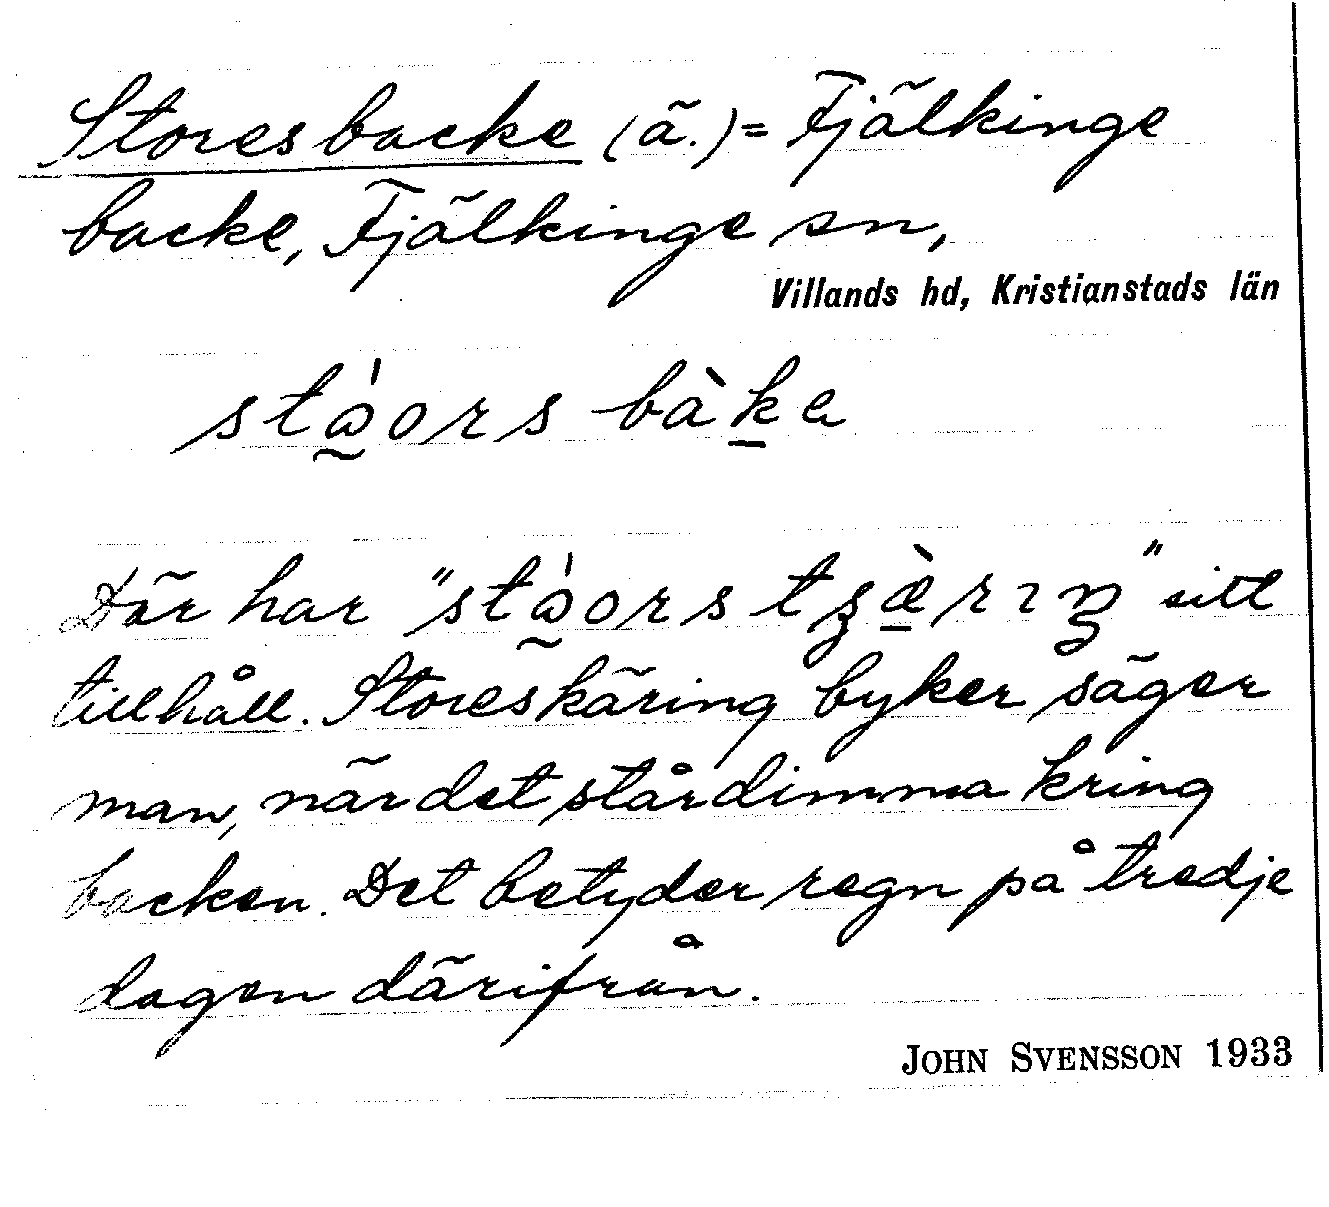 Storesbacke (ä.) = Fjälkinge
backe, Fjälkinge sn,
Villands hd, Kristianstads län
bàke
Där har " " sitt
tillhåll. Storeskäring byker säger
man, när det står dimma kring
backen. Det betyder regn på tredje
dagen därifrån.
JOHN SVENSSON 1933